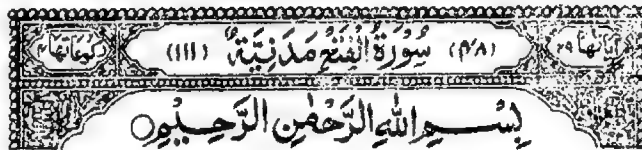 اٰیاتها ۲۹ (۴۸) سُوْرَةُ الْفَتْحِ مَدَنِيَّةٌ (۱۱۱) رکوعاتها ۴
بِسْمِ اللهِ الرَّحْمٰنِ الرَّحِيْمِ